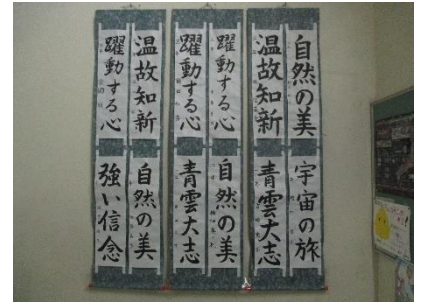 自然の美
温故知新
躍動する心
躍動する心
温故知新
躍動する心
宇宙の旅
青雲大志
自然の美
青雲大志
自然の美
強い信念